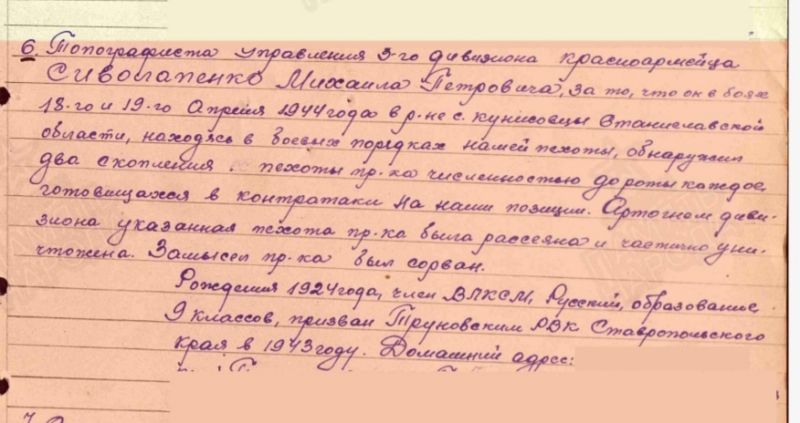 6. Топографиста управления 3-го дивизиона красноармейца
Сиволапенко Михаила Петровича, за то, что он в боях
18-го и 19-го Апреля 1944 года в р-не с. Кунисовцы Станиславской
области, находясь в боевых порядках нашей пехоты, обнаружил
два скопления пехоты пр-ка численностью до роты каждое,
готовящихся в контратаки на наши позиции. Артогнем диви-
зиона указанная пехота пр-ка была рассеяна и частично уни-
чтожена. Замысел пр-ка был сорван.
Рождения 1924 года, член ВЛКСМ, Русский, образование
9 классов, призван Труновским РВК Ставропольского
края в 1943 году. Домашний адрес: